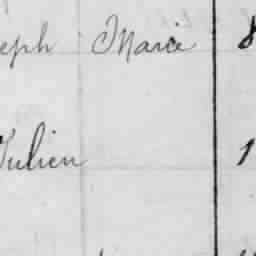 eph Marie 8
Julien 1